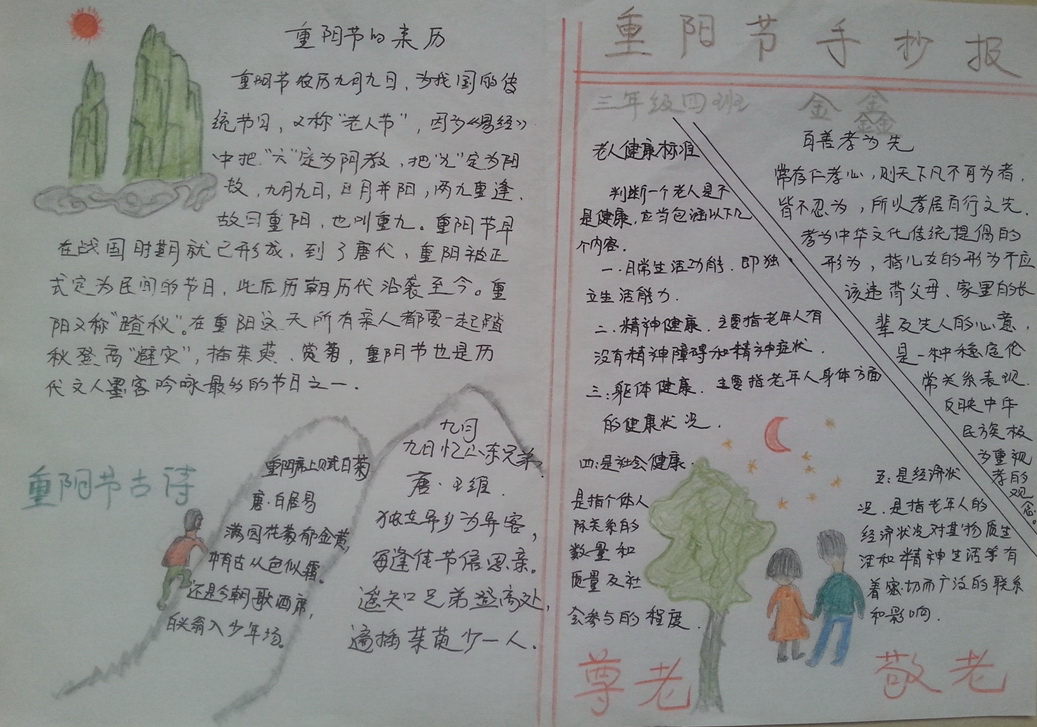 重阳节的来历
重阳节农历九月九日，为我国的传
统节日，又称"老人节"，因为《易经》
中把"六"定为阴数，把"九"定为阳
数，九月九日，日月并阳，两九重逢，
故曰重阳，也叫重九。重阳节早
在战国时期就已形成，到了唐代，重阳被正
式定为民间的节日，此后历朝历代沿袭至今。重
阳又称"踏秋"。在重阳这天所有亲人都要一起踏
秋登高"避灾"，插茱萸、赏菊，重阳节也是历
代文人墨客吟咏最多的节日之一。
重阳节古诗
重阳席上赋白菊
唐·白居易
满园花菊郁金黄，
中有
丛色似霜。
还是今朝歌酒席，
白头翁入少年场。
九月
九日忆山东兄弟
唐·王维.
独在异乡为异客，
每逢佳节倍思亲。
遥知兄弟登高处，
遍插茱萸少一人.
重阳节手抄报
三年级四班
金鑫
老人健康标准
判断一个老人是不
是健康，应当包涵以下几
个内容.
一.日常生活功能.即独
立生活能力.
二.精神健康.主要指老年人有
没有精神障碍和精神症状.
三:躯体健康.主要指老年人身体方面
的健康状况.
四:是社会健康.
是指个体人
际关系的
数量和
质量及社
会参与的程度.
五:是经济状
况.是指老年人的
经济状况对其物质生
活和精神生活学有
着密切而广泛的联系
和影响.
百善孝为先
常存仁孝心，则天下凡不可为者.
皆不忍为，所以孝居百行之先.
孝为中华文化传统提倡的
形为，指儿女的形为不应
该违背父母、家里的长
辈及先人的心意，
是一种稳定伦
常关系表现.
反映中华
民族极
为重视
孝的
观
念。
尊老
敬老